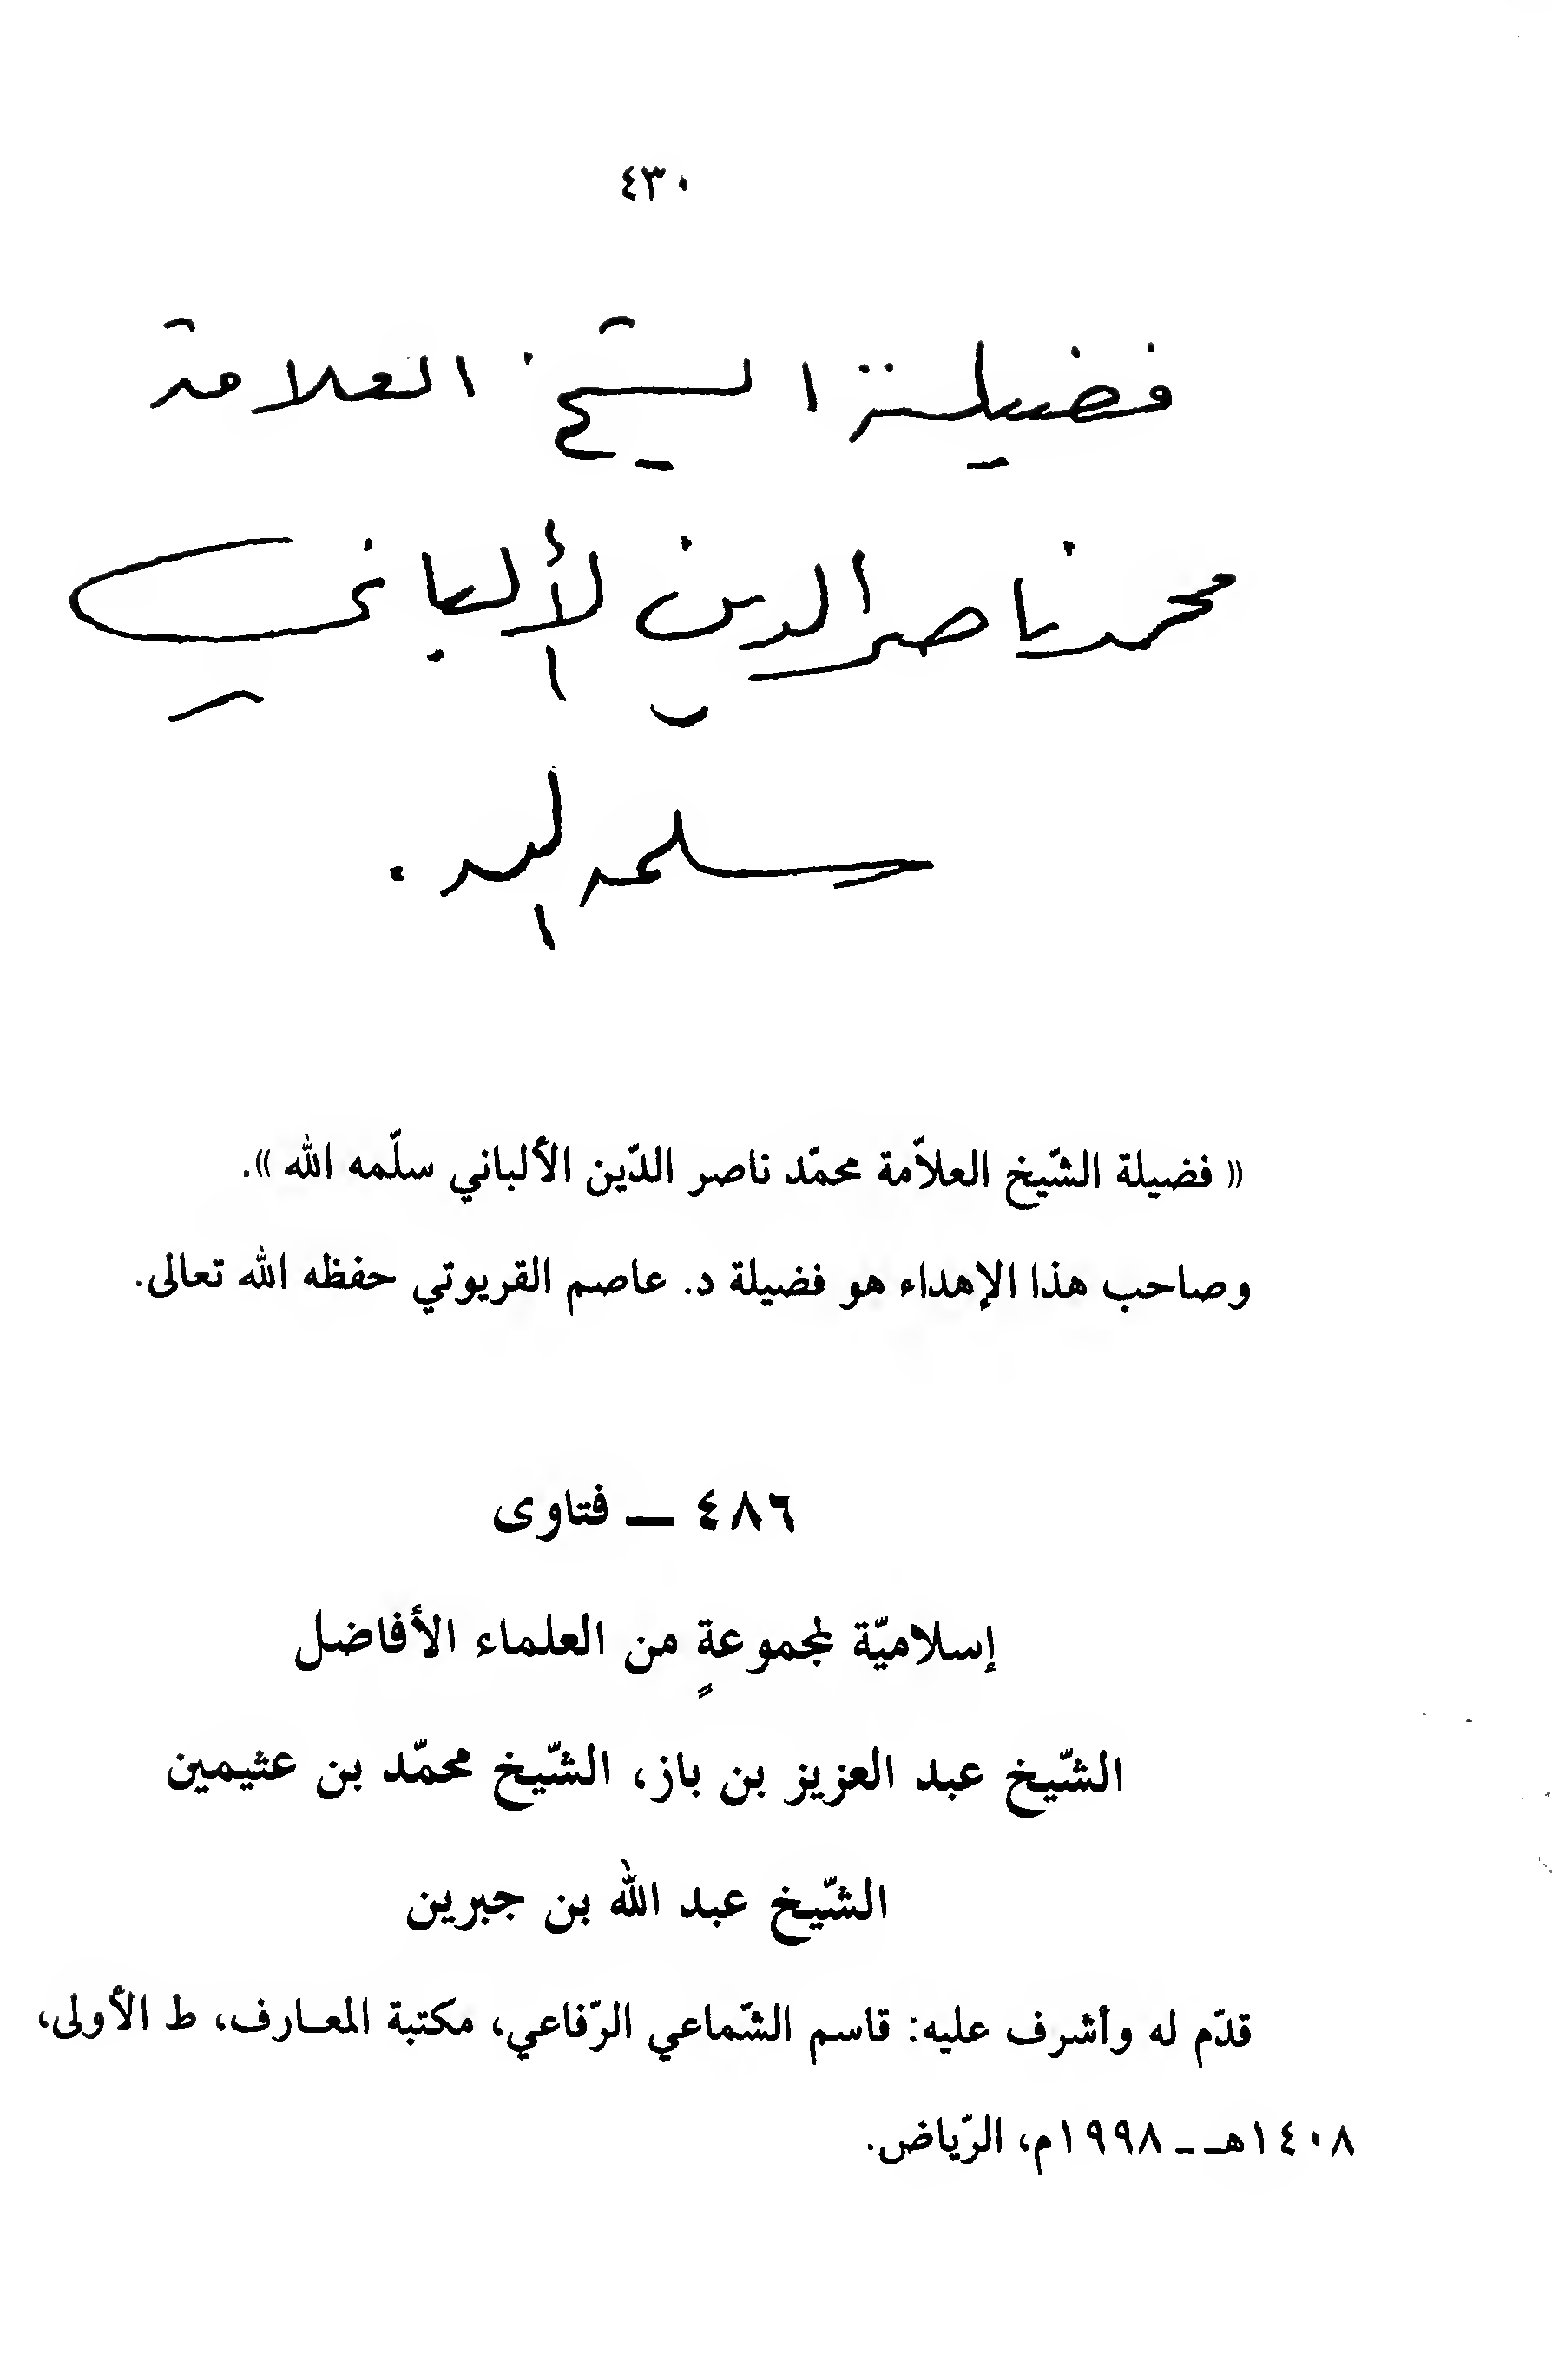 ٤٣٠
فضيلة الشيخ العلامة
محمد ناصر الدين الألباني
سلمه الله .
« فضيلة الشّيخ العلاّمة محمّد ناصر الدّين الألباني سلّمه الله ».
وصاحب هذا الإهداء هو فضيلة د. عاصم القريوتي حفظه الله تعالى.
٤٨٦ ـــ فتاوى
إسلاميّة لمجموعةٍ من العلماء الأفاضل
الشّيخ عبد العزيز بن باز، الشّيخ محمّد بن عثيمين
الشّيخ عبد الله بن جبرين
قدّم له وأشرف عليه: قاسم الشّماعي الرّفاعي، مكتبة المعـارف، ط الأولى،
١٤٠٨هـ ـ ١٩٩٨م، الرّياض.